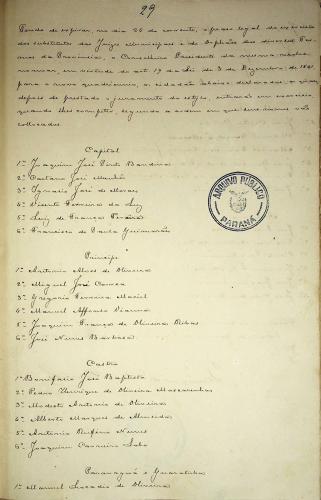 29
Tendo de expirar, no dia 26 do corrente, o praso legal do exercicio
dos substitutos dos Juizes Municipaes e de Orphãos dos diversos Ter-
mos da Provincia, o Conselheiro Presidente da mesma resolve
nomear, em virtude do art. 19 da Lei de 3 de Dezembro de 1841
para o novo quadriennio, os cidadãos abaixo declarados, os quaes
depois de prestado o juramento do estylo, entrarão em exercicio
quando lhes competir, segundo a ordem em que
collocados.
Capital
1º Joaquim José Pinto Bandeira
2º Caetano José Munhoz
3º Ignacio José de Moraes
4º Vicente Ferreira da Luz
5º Luiz de França
6º Francisco de Paula Guimarães
Principe
1º Antonio Alves de Oliveira
2º Miguel José Correa
3º Gregorio Ferreira Maciel
4º Manuel Affonso Vianna
5º Joaquim França de Oliveira Ribas
6º José Nunes Barbosa
Castro
1º Bonifacio José Baptista
2º Pedro Henrique de Oliveira Mascarenhas
3º Modesto Antonio de Oliveira
4º Alberto Marques de Almeida
5º Antonio Rufino Nunes
6º Joaquim Carneiro Lobo
Paranaguá e Guaratuba
1º Manuel Leocadio de Oliveira
ARQUIVO PÚBLICO
PARANÁ